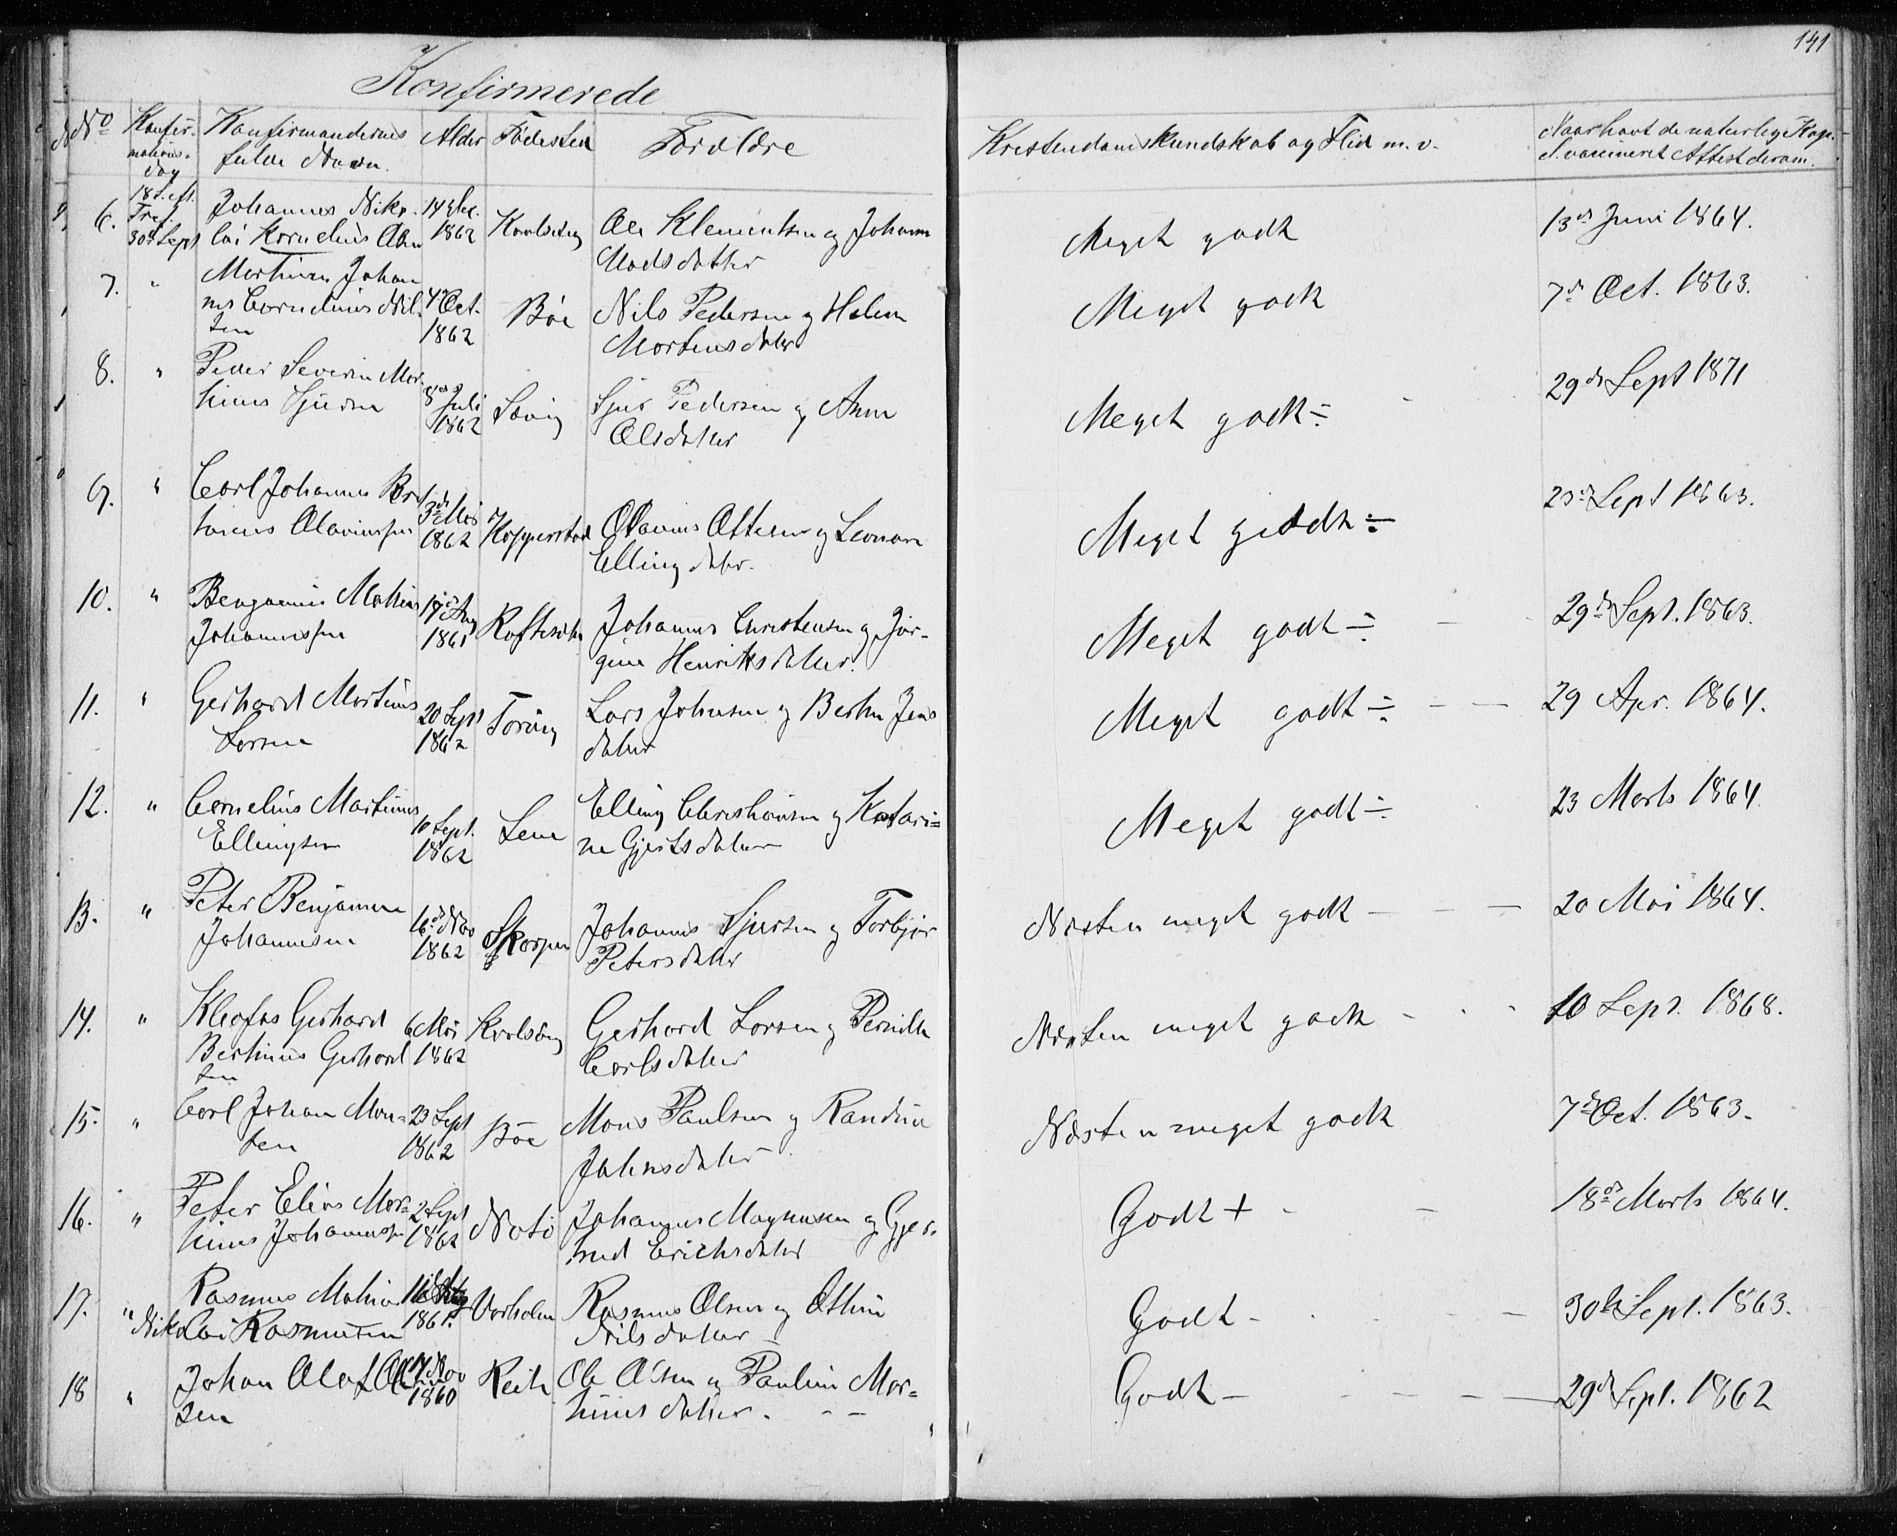 141
Konfirmerede
No Konfirmations-Dag Konfirmandernes fulde Navn. Alder Fødested Forældre Kristendomskundskab og Flid m. v. Naar havt de naturlige Kop. el. vaccineret Attest derom.
6. 18 S. eft. Tref. 30d Sept Johannes Nikolai Kornelius Olsen 1862 Ole Klementsen og Johanne Madsdatter Meget godt 13de Juni 1864.
7. " Johannes Cornelius Nilsen 4de Oct. 1862 Bøe Nils Pedersen og Helene Mortensdatter Meget godt 7de Oct. 1863.
8. " Peder Severin Martinus Sjursen 8de Juli 1862 Sæviq Sjur Pedersen og Anne Olsdatter Meget godt ÷ 29de Sept 1871
9. " Carl Johannes Olaviussen 3de Mai 1862 Kopperstad Olavius Ottesen og Leonore Ellingsdatter. Meget godt ÷ 23de Sept 1863.
10. " Bengamin Mathias Johannessen 1861 Johannes Christensen og Jørgine Henriksdatter. Meget godt ÷ 29de Sept. 1863.
11. " Gerhard Martinus Larsen 20 Sept 1862 Lars Johnsen og Berthe Jensdatter Meget godt ÷ 29 Apr. 1864.
12. " Cornelius Martinus Ellingsen 10 Sept. 1862 Lene Elling Christiansen og Katarine Gjertsdatter Meget godt ÷ 23 Marts 1864.
13. " Peter Benjamin Johannesen 16de Nov 1862 Skorpen Johannes Sjursen og Torbjør Petersdatter Næsten meget godt 20 Mai 1864.
14. " Kleofas Gerhard Bertinus Gerhardsen 6 Mai 1862 Gerhard Larsen og Pernille Carlsdatter Næsten meget godt 10 Sept. 1868.
15. " Carl Johan Monsen 23 Sept 1862 Bøe Mons Paulsen og Randine Johnsdatter Næsten meget godt 7de Oct. 1863.
16. " Peter Elias Martinus Johannessen 2 Sept 1862 Notø Johannes Magnusen og Gjertrud Erichsdatter Godt + 18de Marts 1864.
17. " Rasmus Mathias Nikolai Rasmussen 1861. Varholm Rasmus Olsen og Nilsdatter Godt - 30te Sept. 1863.
18 " Johan Olaf Olsen 17 Nov 1860 Ole Olsen og Pauline Martinusdatter. Godt - 29de Sept. 1862